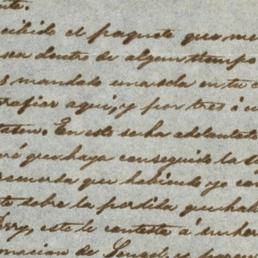 te.
cibido el paquete que me
sea dentro de algun tiempo
mandado una sola en tu c
grafiar aqui, y por tres ó c
En esto se ha adelantado
rá que haya conseguido la
recuerda que habiendo yo con
te sobre la perdida que hab
este le contestó á su her
macion de